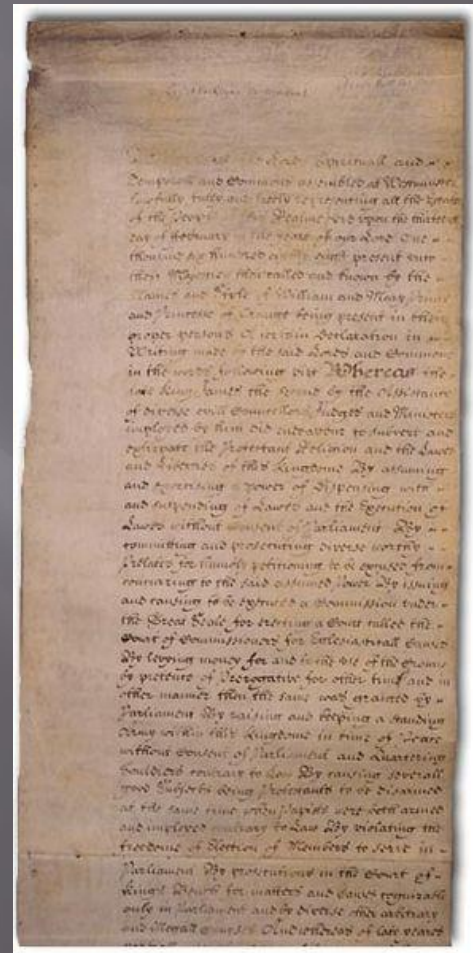 the Lords Spirituall and
Temporall and Commons assembled at Westminster
Lawfully fully and freely representing all the Estates
of the People of this Realme did upon the thirteenth
day of February in the yeare of our Lord One
thousand six hundred eighty eight present unto
their Majesties then called and known by the
Names and Stile of William and Mary Prince
and Princesse of Orange being present in their
proper Persons A certain Declaration in
Writing made by the said Lords and Commons
in the words following viz Whereas the
late King James the Second by the Assistance
of diverse evill Councellors Judges and Ministers
imployed by him did endeavour to subvert and
extirpate the Protestant Religion and the Lawes
and Liberties of this Kingdome By assuming
and exercising a Power of Dispensing with
and suspending of Lawes and the Execution of
Lawes without Consent of Parliament By
committing and prosecuting diverse worthy
Prelates for humbly petitioning to be excused from
concurring to the said assumed Power By issuing
and causing to be executed a Commission under
the Great Seale for erecting a Court called the
Court of Commissioners for Ecclesiasticall Causes
By levying money for and to the use of the Crowne
by pretence of Prerogative for other time and in
other manner then the same was granted by
Parliament By raising and keeping a Standing
Army within this Kingdome in time of Peace
without Consent of Parliament and Quartering
Souldiers contrary to Law By causing severall
good Subjects being Protestants to be disarmed
at the same time when Papists were both armed
and imployed contrary to Law By violating the
freedome of Election of Members to serve in
Parliament By prosecutions in the Court of
Kings Bench for matters and Causes cognizable
only in Parliament and by diverse other arbitrary
and illegall Courses And whereas of late yeares